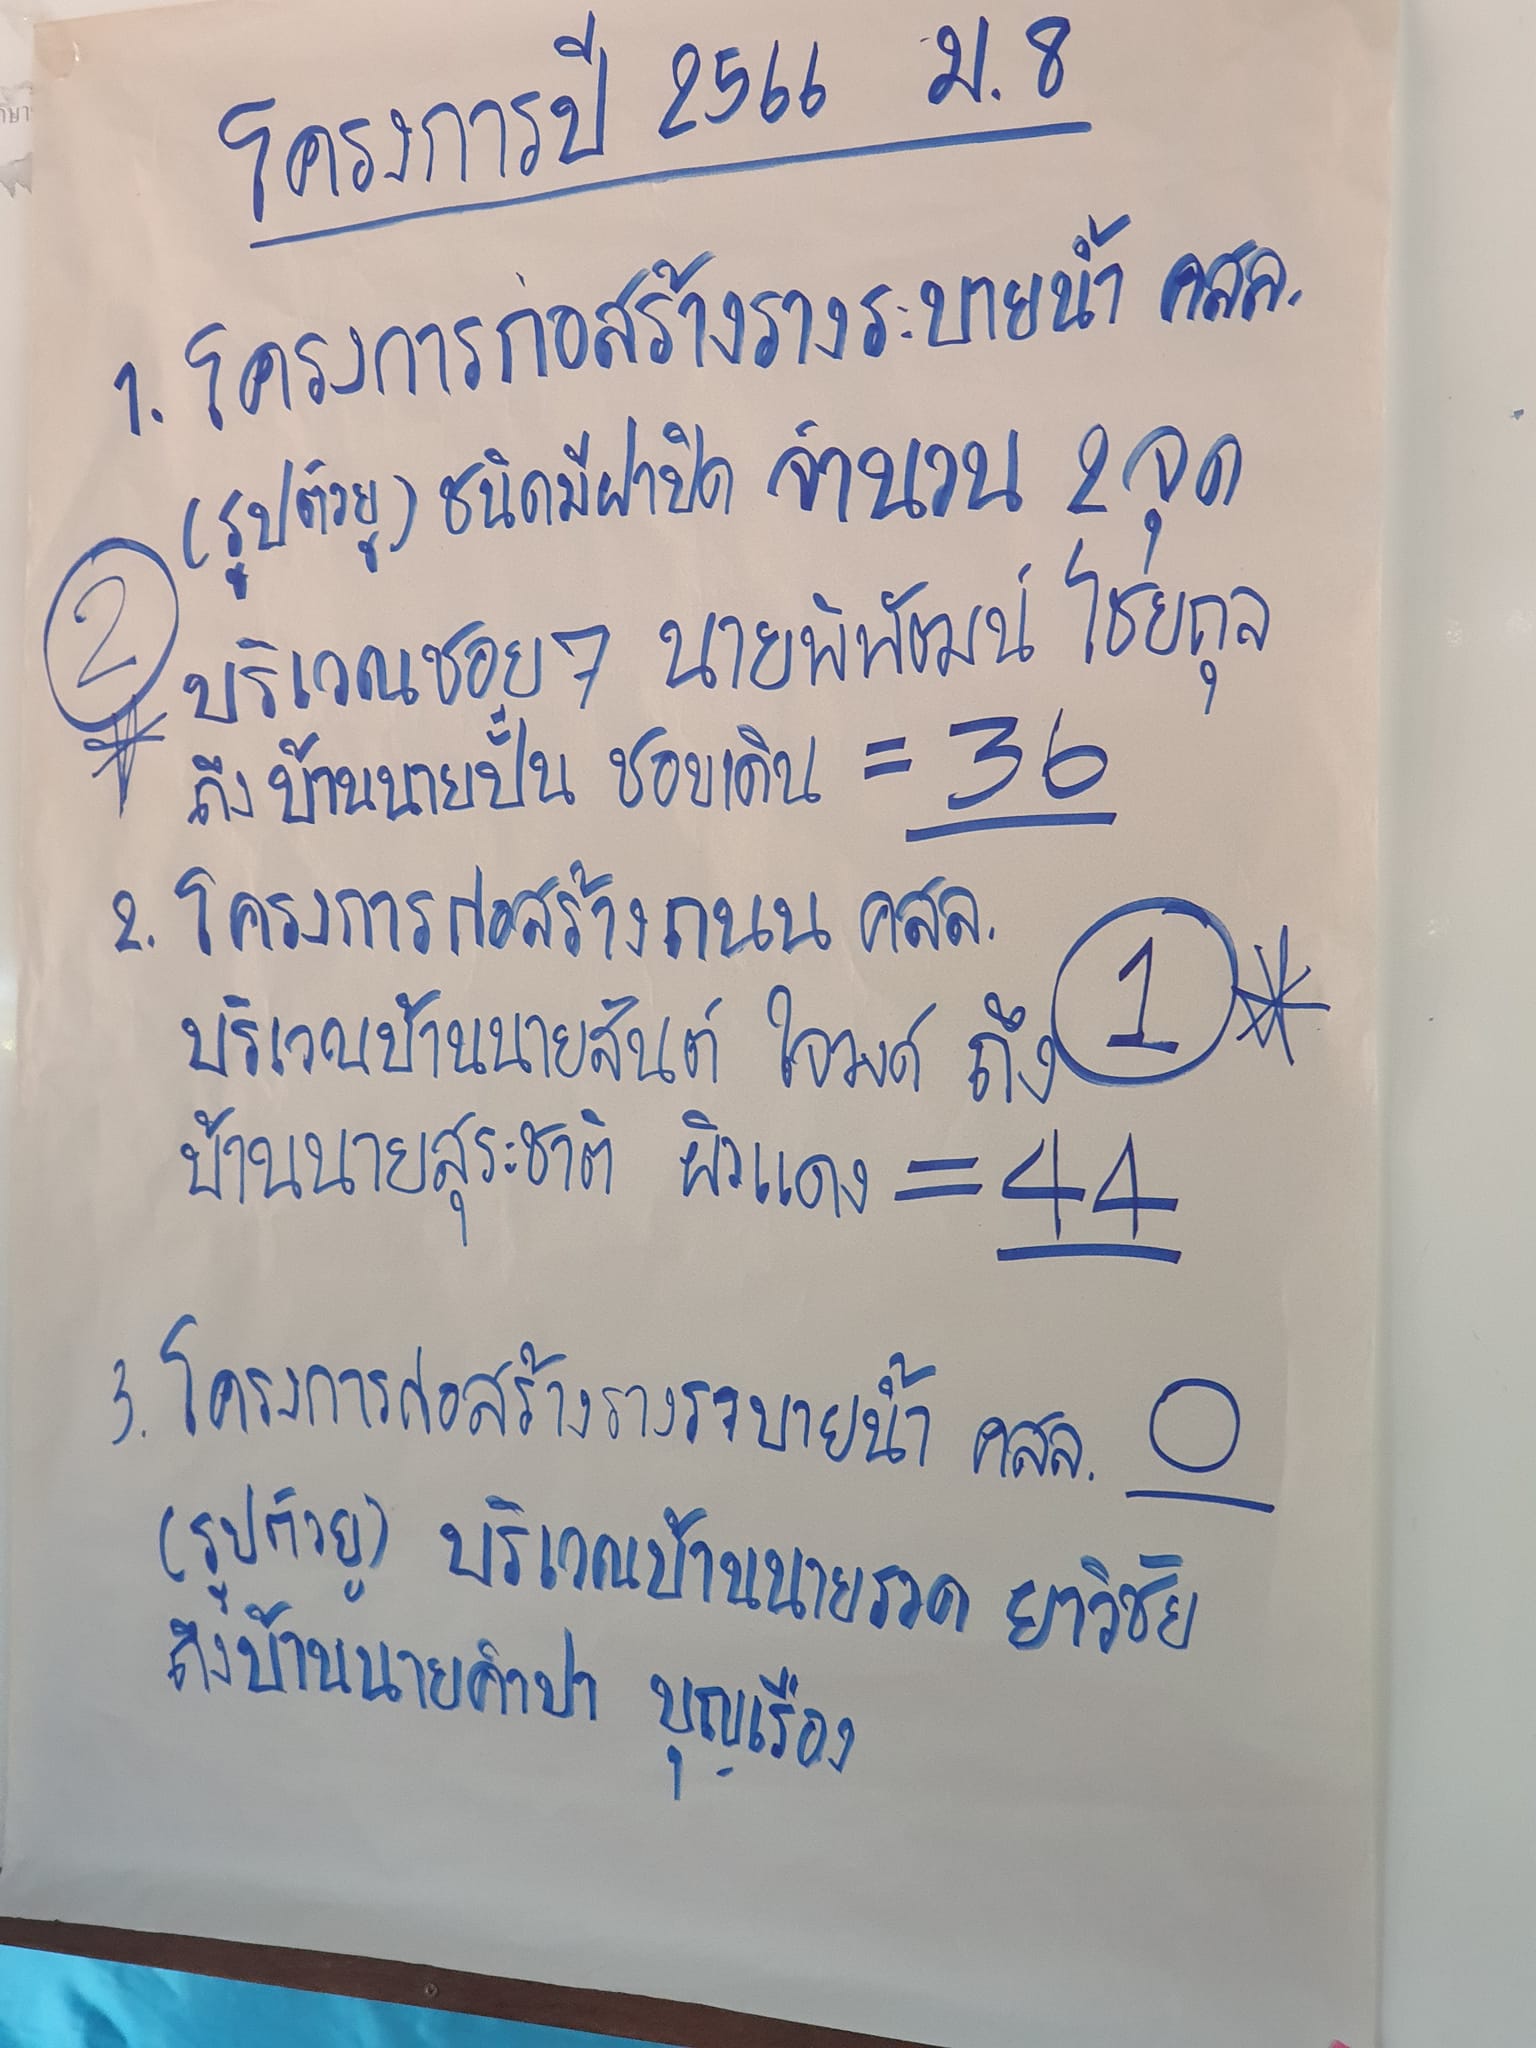 โครงการปี 2566 ม.8
1. โครงการก่อสร้างรางระบายน้ำ คสล.
(รูปตัวยู) ชนิดมีฝาปิด จำนวน 2 จุด
2
บริเวณซอย 7 นายพิพัฒน์ ไชยกุล
ถึงบ้านนายปั๋น ชอบเดิน = 36
2. โครงการก่อสร้างถนน คสล.
1 *
บริเวณบ้านนายสันต์ ใจวงค์ ถึง
บ้านนายสุระชาติ ผิวแดง = 44
3. โครงการก่อสร้างรางระบายน้ำ คสล. 0
(รูปตัวยู) บริเวณบ้านนายรวด ยาวิชัย
ถึงบ้านนายคำปา บุญเรือง